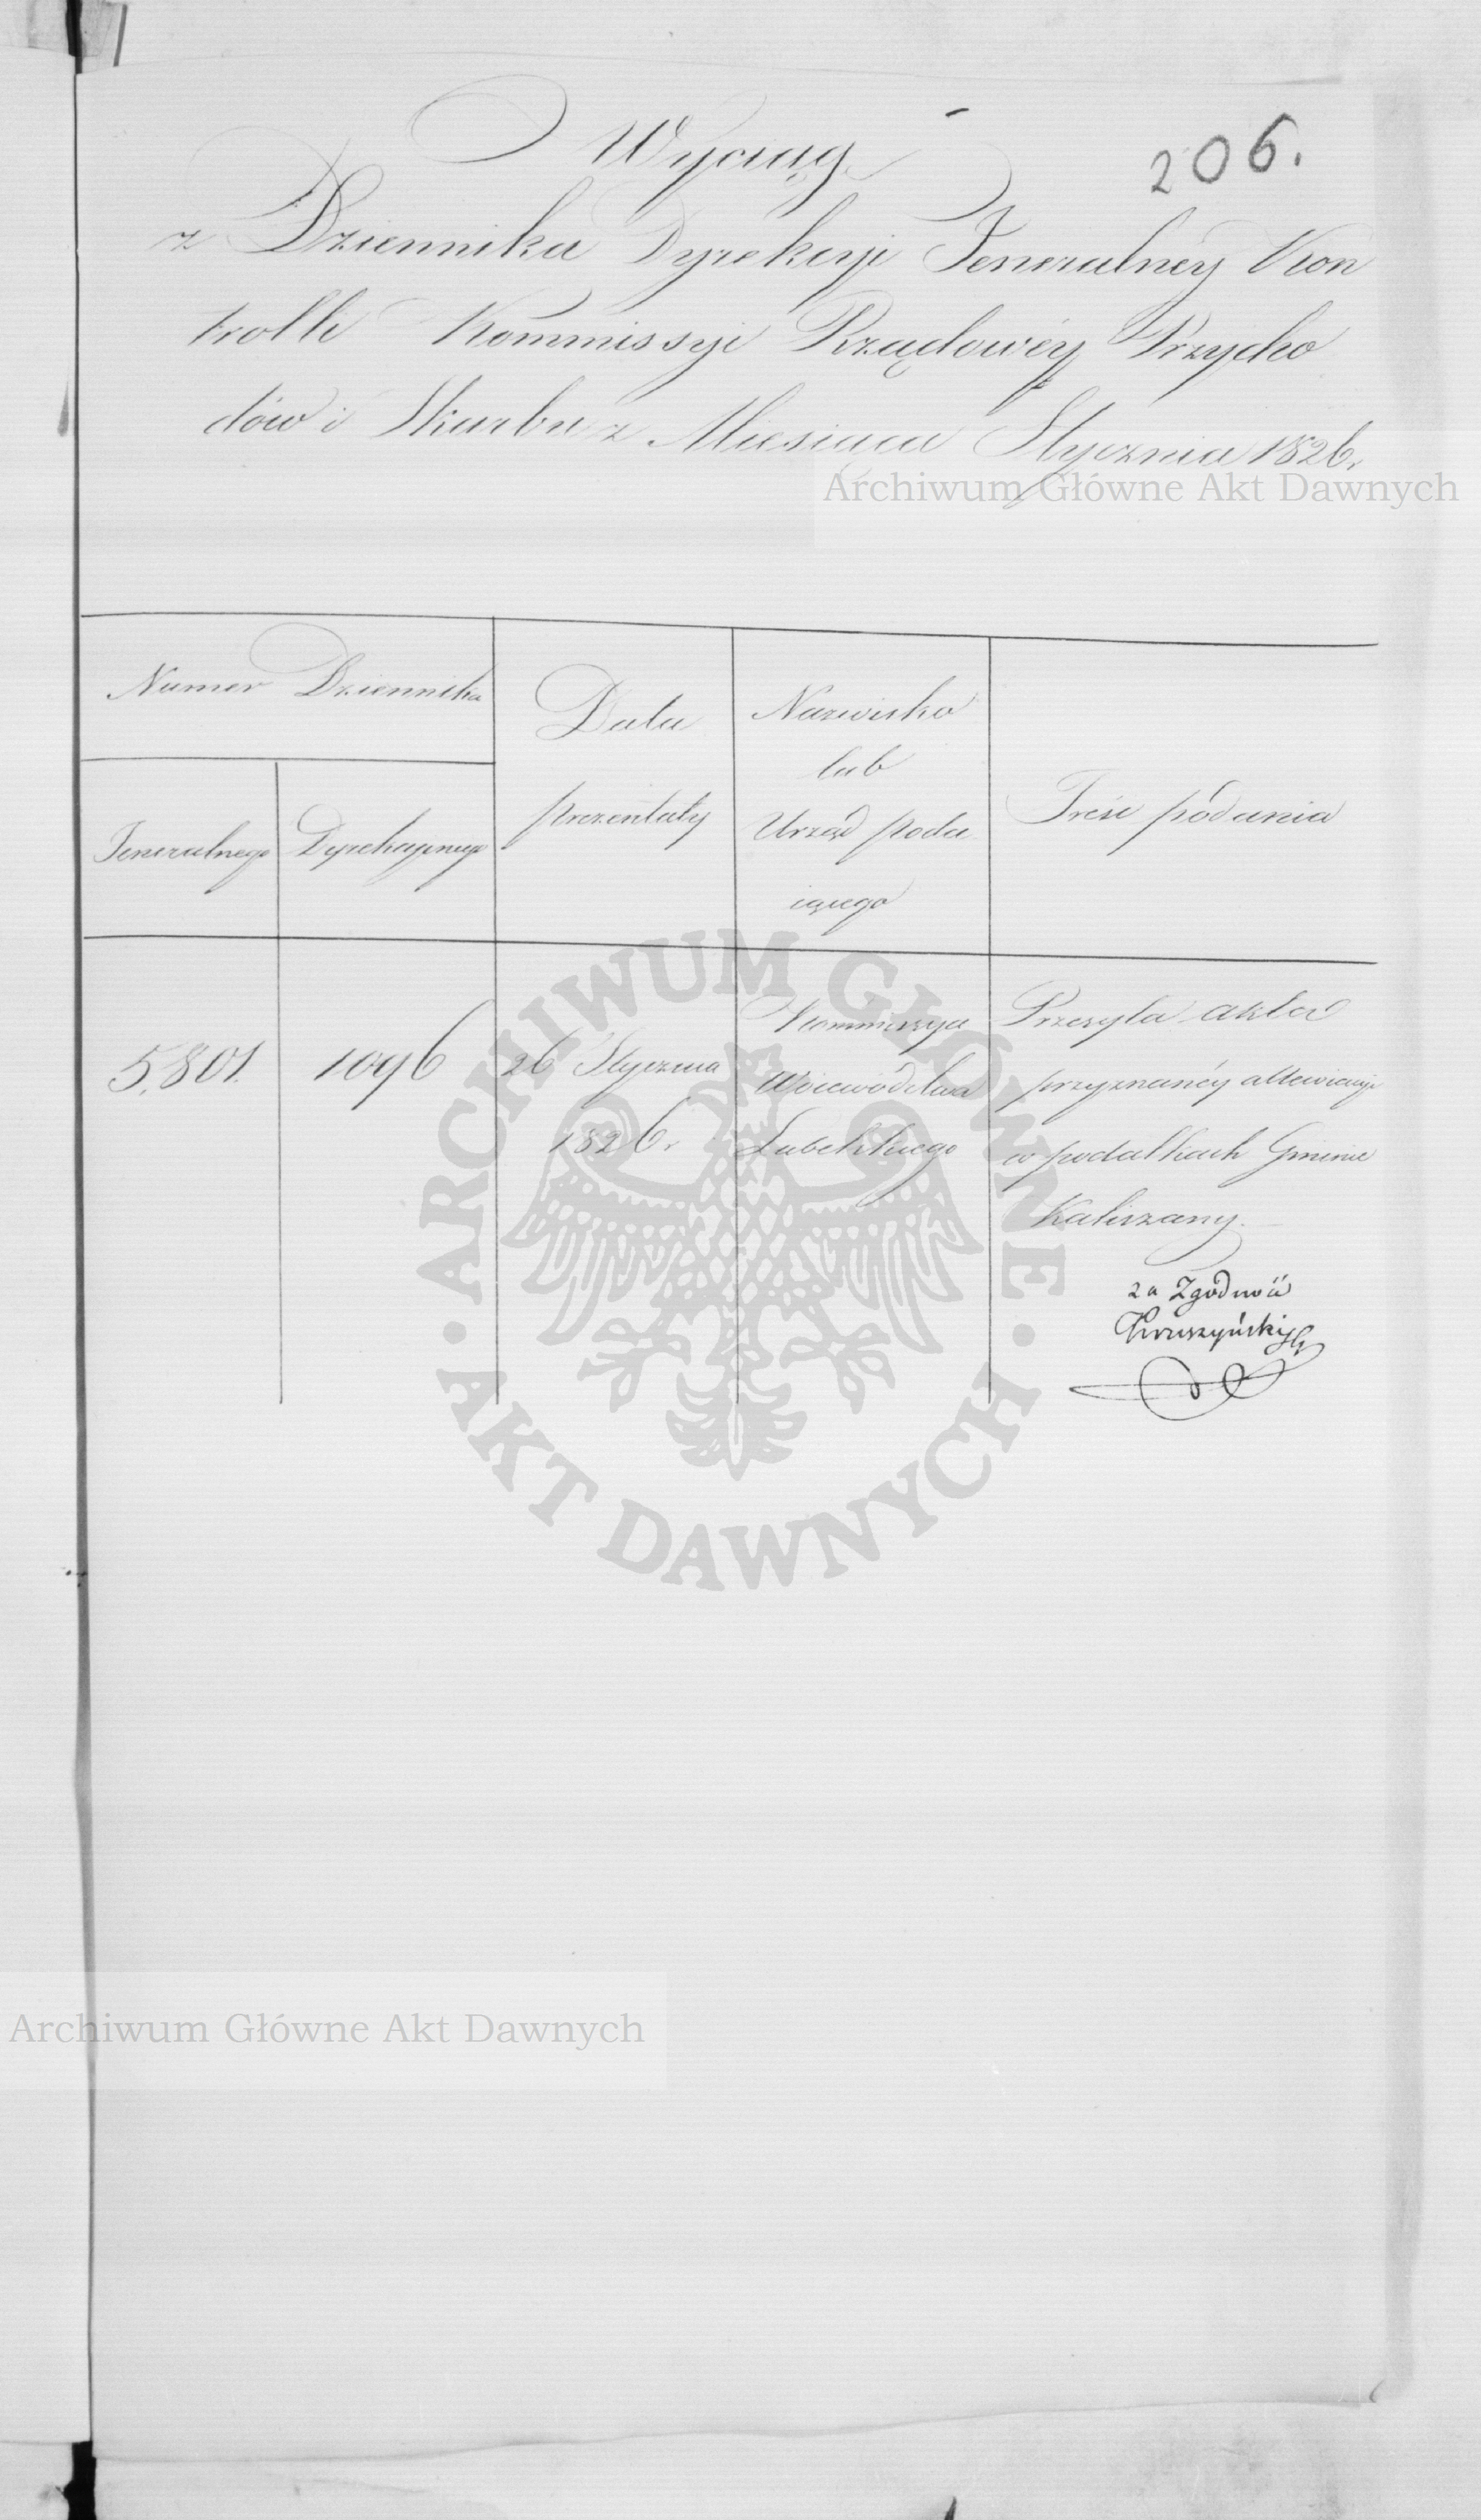 206.
Wyciąg
z Dziennika Dyrekcyi Jeneralnéy Kon
trolli Kommissyi Rządowéy Przycho
dów i Skarbu z Miesiąca Stycznia 1826.
Archiwum Główne Akt Dawnych
Numer Dziennika
Jeneralnego
Dyrekcyinego
Data
prezentaty
Nazwisko
lub
Urząd poda
iącego
Treść podania
5,801.
1096
26 Stycznia
1826.
Kommissya
Woiewództwa
Lubelskiego
Przesyła akta
przyznanéy allewiacyi
w podatkach Gminie
Kaliszany.
za Zgodność
ARCHIWUM GŁÓWNE
AKT DAWNYCH
Archiwum Główne Akt Dawnych